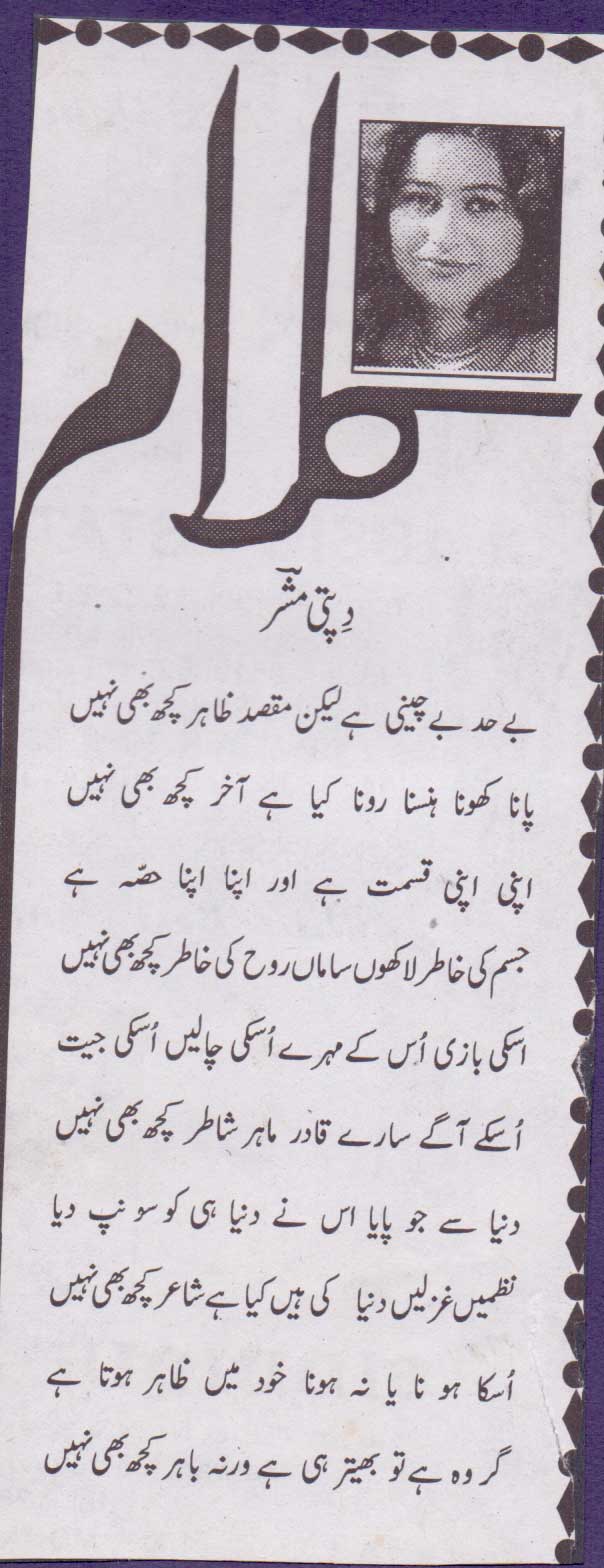 کلام
دِپتی مشرؔ
بے حد بے چینی ہے لیکن مقصد ظاہر کچھ بھی نہیں
پانا کھونا ہنسنا رونا کیا ہے آخر کچھ بھی نہیں
اپنی اپنی قسمت ہے اور اپنا اپنا حصّہ ہے
جسم کی خاطر لاکھوں ساماں روح کی خاطر کچھ بھی نہیں
اسکی بازی اُس کے مہرے اُسکی چالیں اُسکی جیت
اُسکے آگے سارے قادر ماہر شاطر کچھ بھی نہیں
دنیا سے جو پایا اس نے دنیا ہی کو سونپ دیا
نظمیں غزلیں دنیا کی ہیں کیا ہے شاعر کچھ بھی نہیں
اُسکا ہو نا یا نہ ہونا خود میں ظاہر ہوتا ہے
گر وہ ہے تو بھیتر ہی ہے ورنہ باہر کچھ بھی نہیں